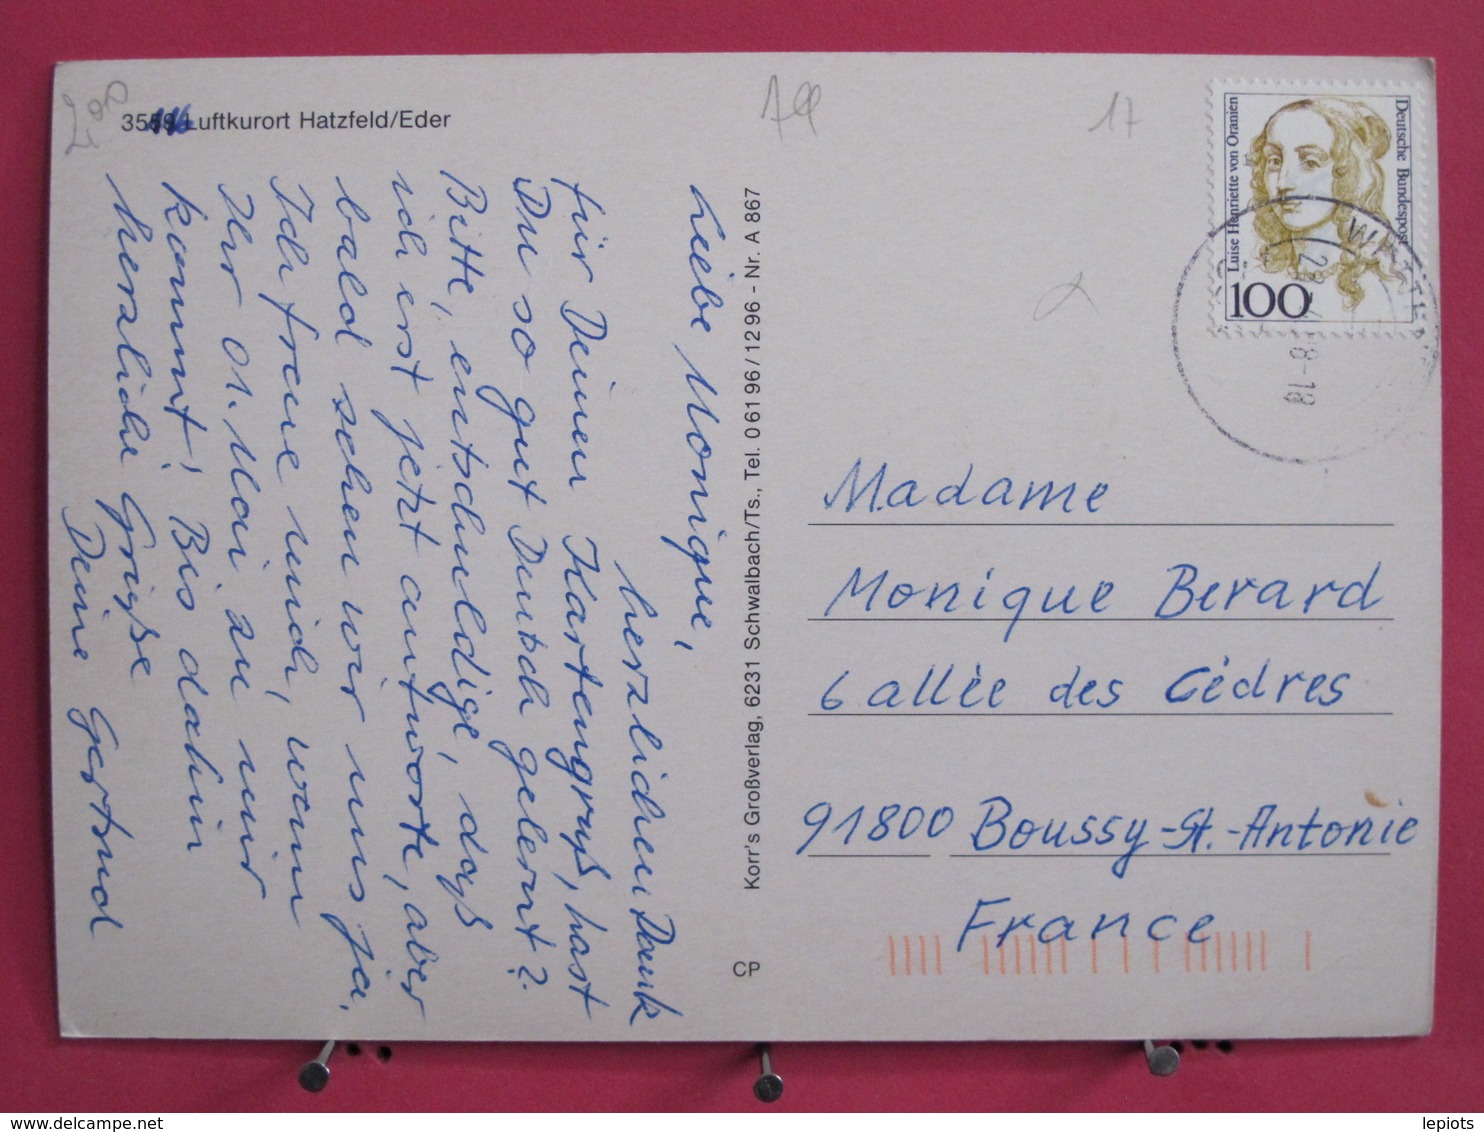 3559 Luftkurort Hatzfeld/Eder
Liebe Monique,
herzlichen Dank
für Deinen Kartengruß, hast
Du so gut Deutsch gelernt?
Bitte, entschuldige, daß
ich erst jetzt antworte, aber
bald sehen wir uns ja.
Ich freue mich, wenn
Ihr 01. Mai zu mir
kommt! Bis dahin
herzliche Grüße
Deine Gertrud
Korr's Großverlag, 6231 Schwalbach/Ts., Tel. 06196/1296 - Nr. A 867
CP
17
Deutsche Bundespost
Luise Henriette von Oranien
100
Madame
Monique Berard
6 allée des Cèdres
91800 Boussy-St.-Antonie
France
lepiots